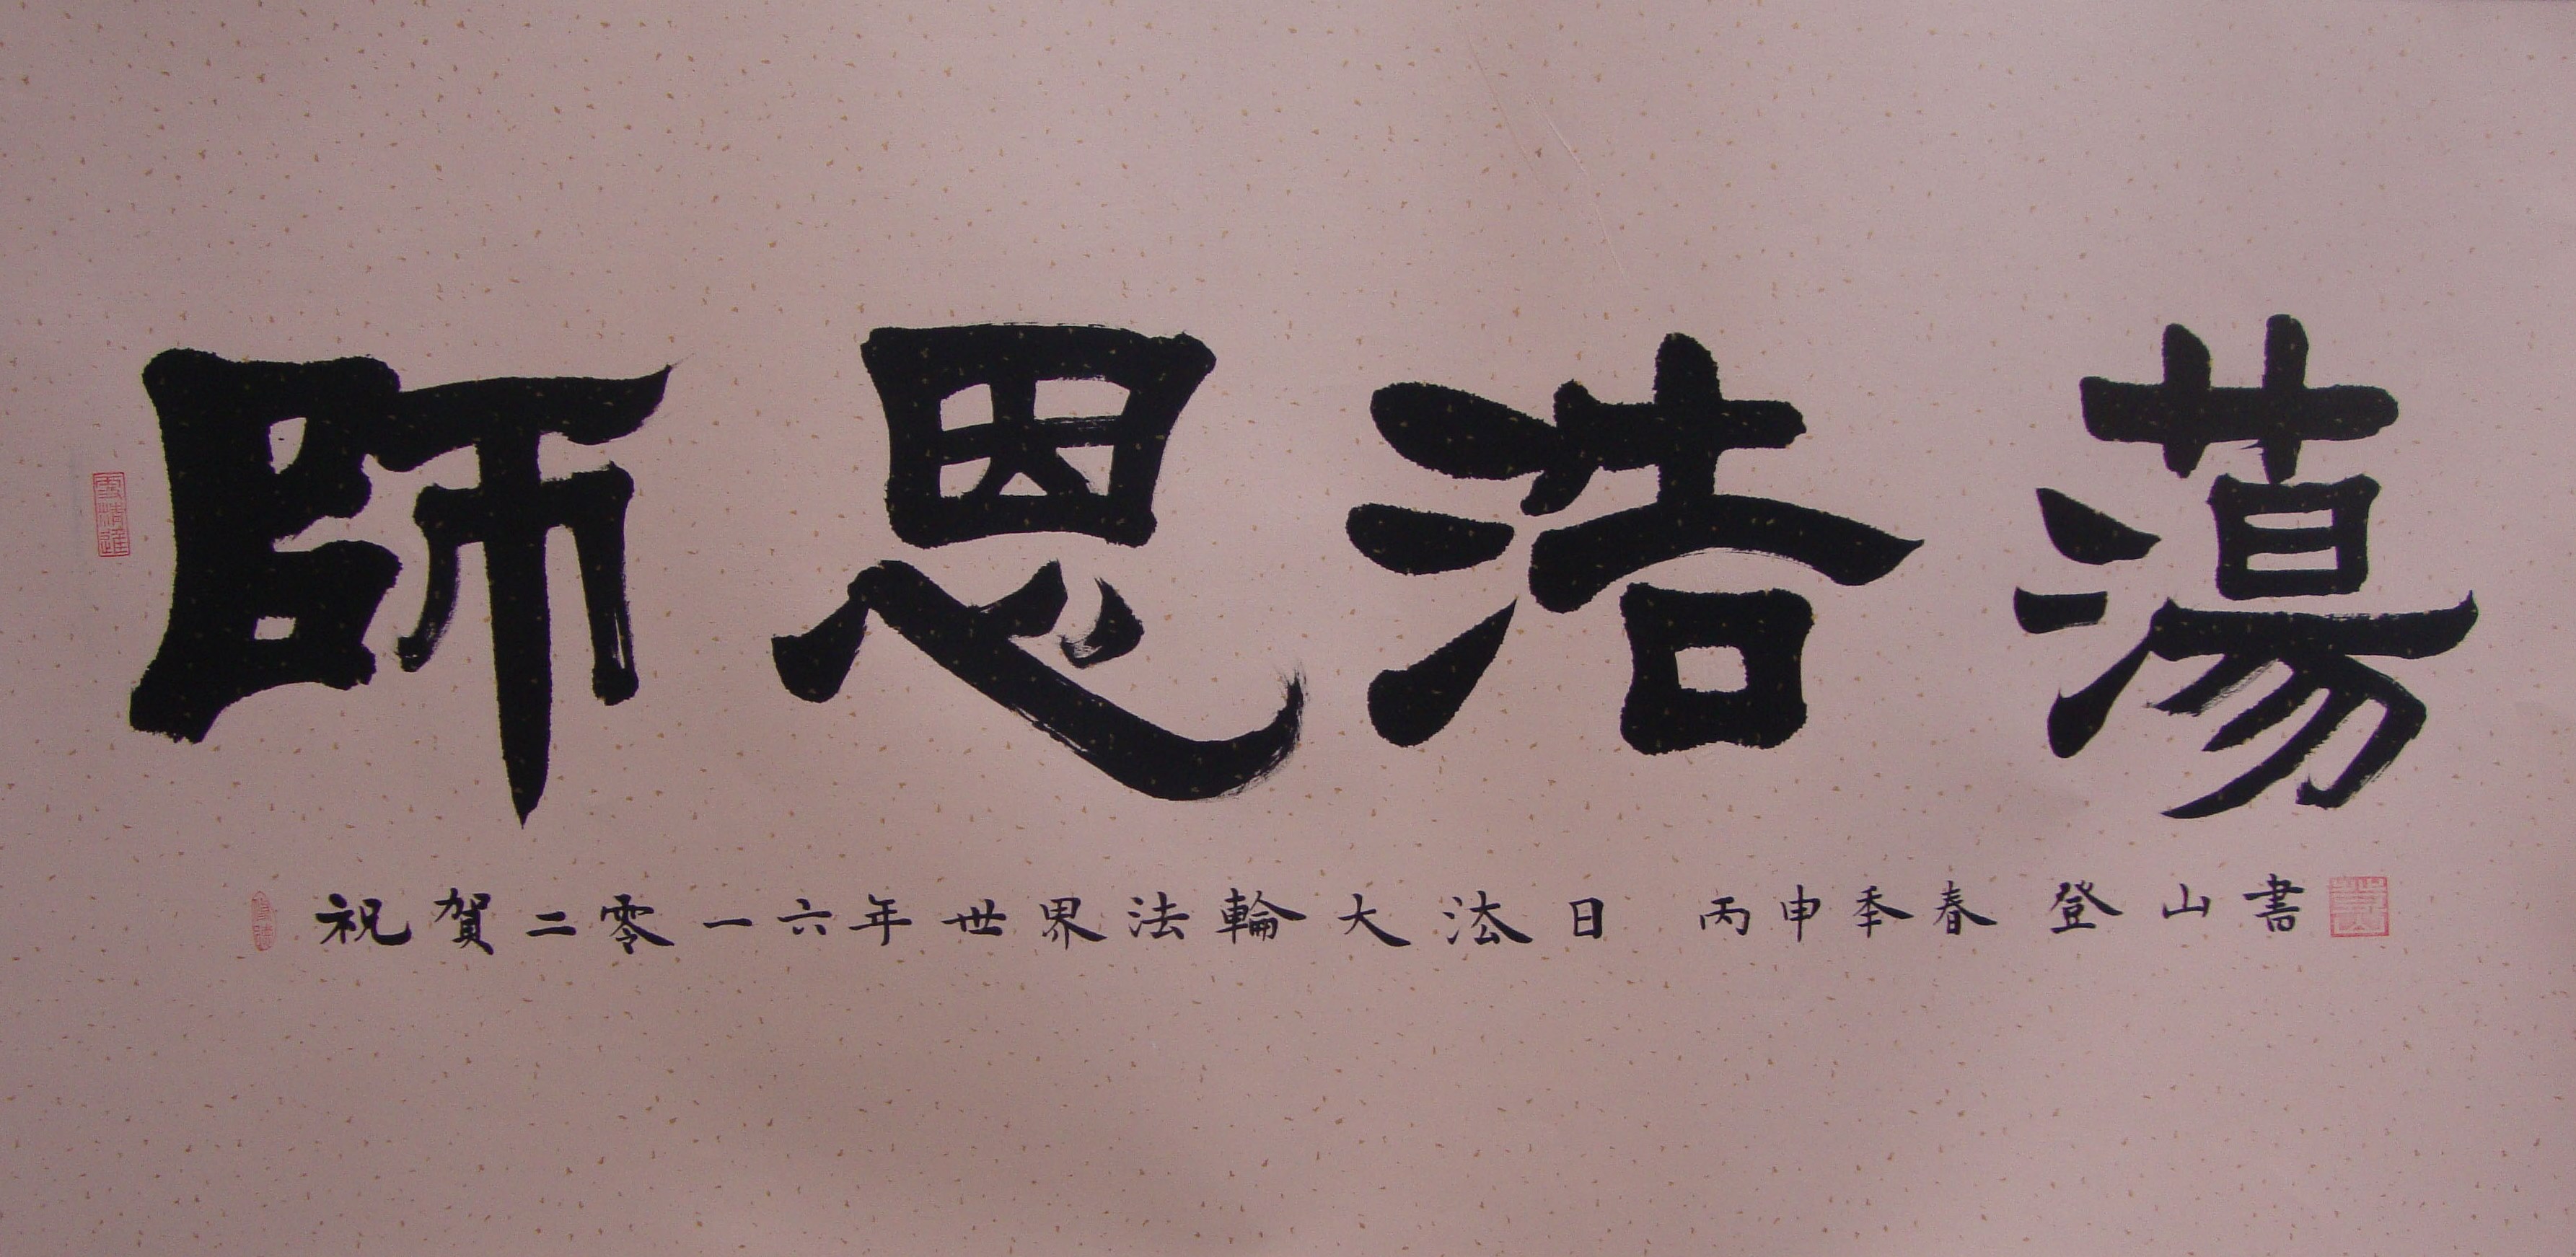 師恩浩蕩
祝賀二零一六年世界法輪大法日 丙申季春 登山書